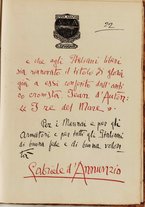 22
e che agli Italiani
rinnovato il titolo di gloria
già a essi conferito dall'anti
co cronista Jean d'Auton:
I re del Mare.
Per i Marinai e per gli
Armatori e per tutti gli Italiani
di buona fede e di buona volon
tà.
Gabriele d'Annunzio